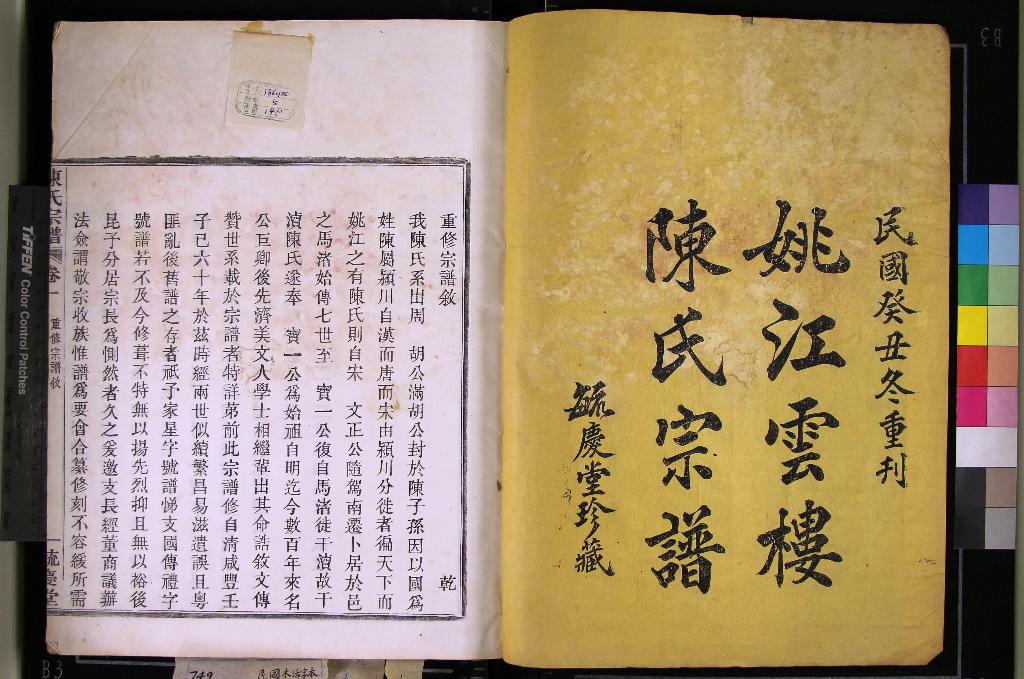 民國癸丑冬重刊
姚江雲樓
陳氏宗譜
毓慶堂珍藏
重修宗譜敘 乾
我陳氏系出周 胡公滿胡公封於陳子孫因以國爲
姓陳屬潁川自漢而唐而宋由潁川分徙者徧天下而
姚江之有陳氏則自宋 文正公隨駕南遷卜居於邑
之馬渚始傳七世至 寳一公復自馬渚徙干瀆故干
瀆陳氏遂奉 寳一公爲始祖自明迄今數百年來名
公巨卿後先濟美文人學士相繼輩出其命誥敘文傳
贊世系載於宗譜者特詳苐前此宗譜修自清咸豐壬
子已六十年於茲時經兩世似續繁昌易滋遺誤且粵
匪亂後舊譜之存者祇予家星字號譜悌支國傳禮字
號譜若不及今修葺不特無以揚先烈抑且無以裕後
昆予分居宗長爲惻然者久之爰邀支長經董商議辦
法僉謂敬宗收族惟譜爲要會合纂修刻不容緩所需
陳氏宗譜 卷一 重修宗譜敘 一 毓慶堂
TIFFEN Color Control Patches
B3
749
民国木活字本
B3